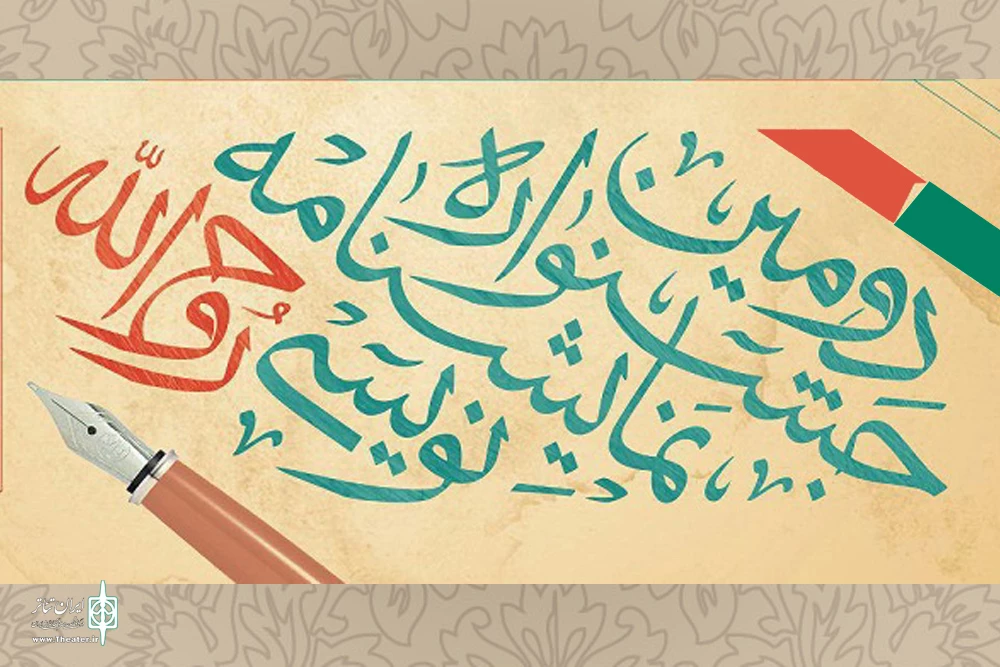 دومین
جشنواره
نمایشنامه
نویسی
روح الله
ایران تئاتر
www.Theater.ir